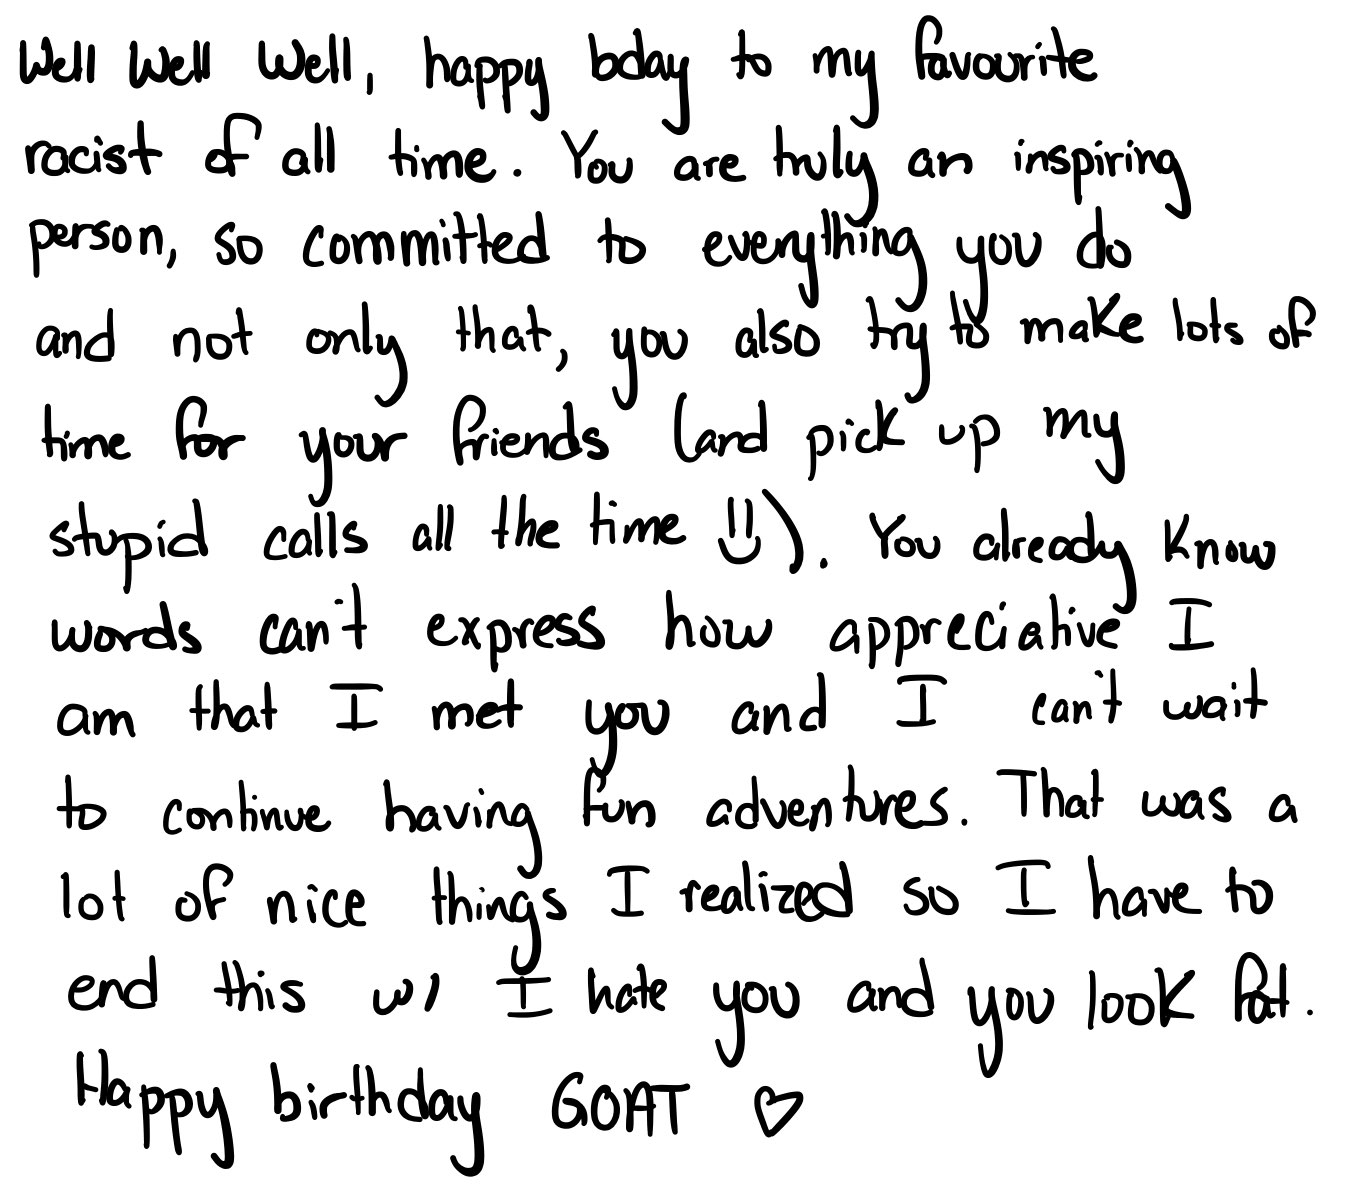 Well Well Well, happy bday to my favourite
racist of all time. You are truly an inspiring
person, so committed to everything you do
and not only that, you also try to make lots of
time for your friends (and pick up my
stupid calls all the time :)). You already know
words can't express how appreciative I
am that I met you and I can't wait
to continue having fun adventures. That was a
lot of nice things I realized so I have to
end this w/ I hate you and you look fat.
Happy birthday GOAT ♡